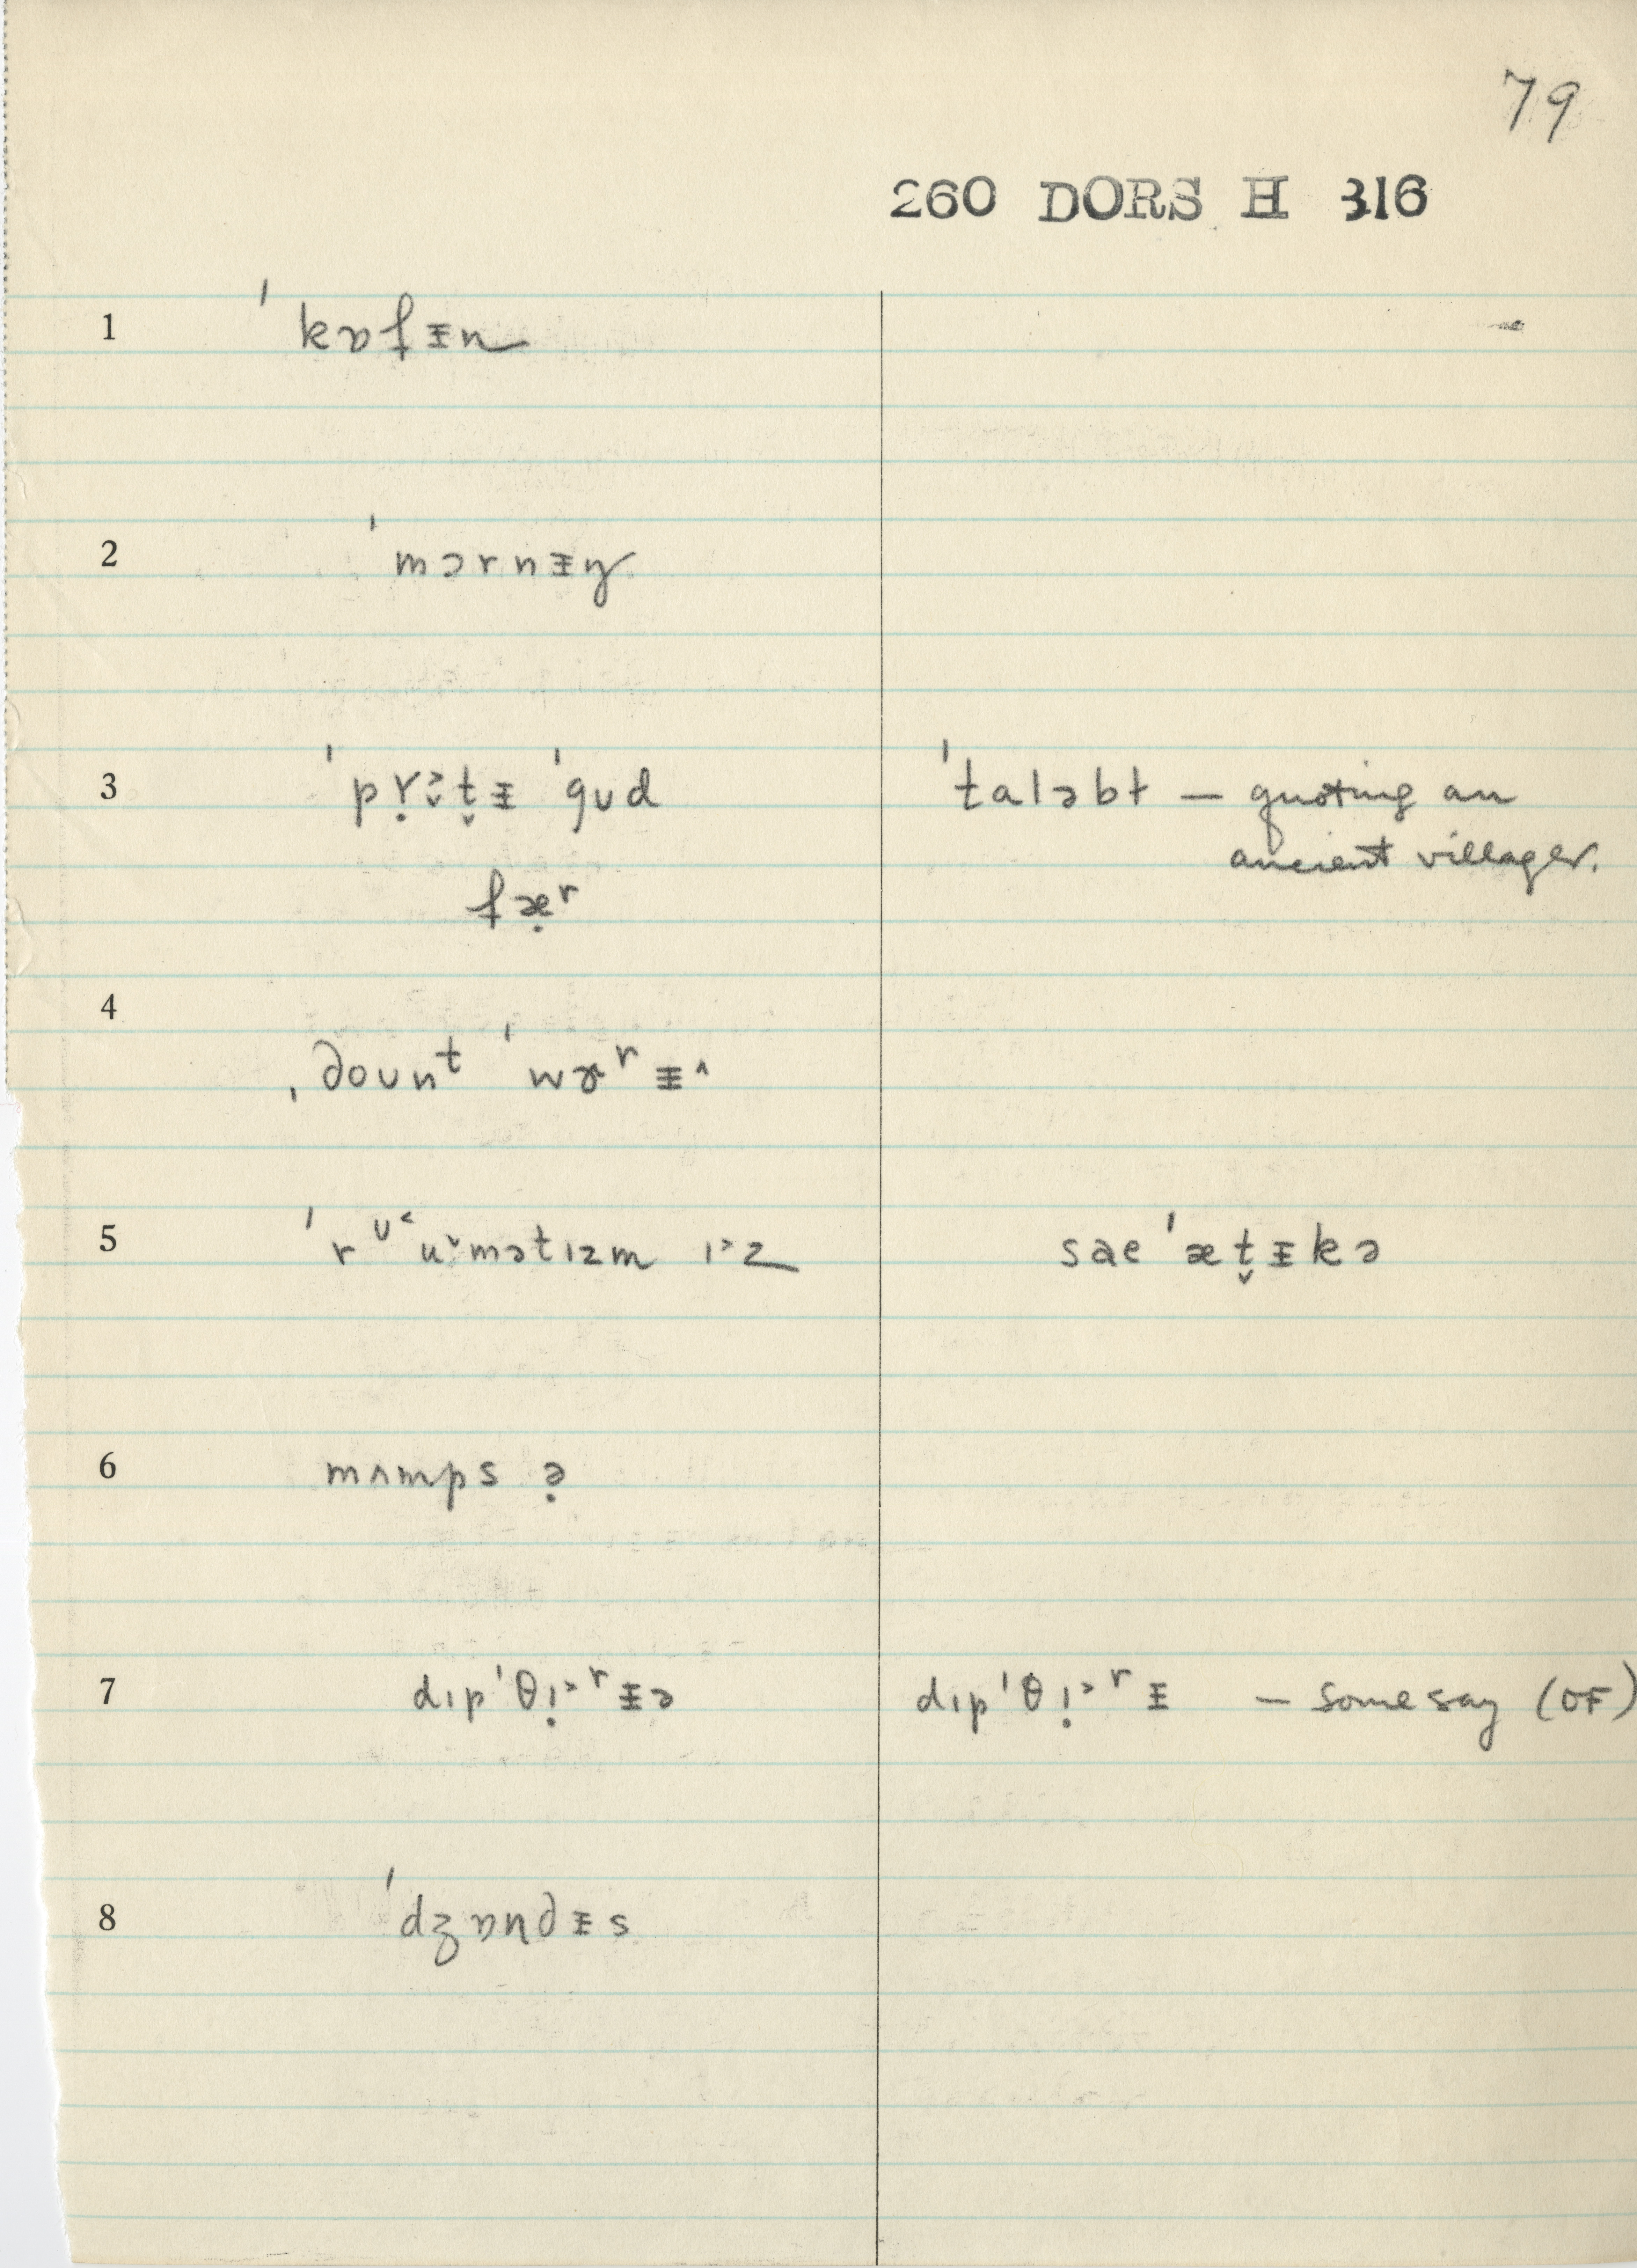 79
260 DORS H 316
1 ˈkɒfᵻn
2 ˈmɔrnᵻŋ
3 ˈpṛɪ̈˃t̬ᵻ ˈgʊd ˈtaləbt — quoting an
ancient villager.
fæ̣ʳ
4
ˌdoʊnᵗ ˈwɤʳᵻ˄
5 ˈrᶷ˂u˅mətɪzm ɪ˃z saeˈæt̬ᵻkə
6 mʌmps ə̣
7 dɪpˈθị˃ʳᵻə dɪpˈθị˃ʳᵻ — some say (OF)
8 ˈdʒɒndᵻs